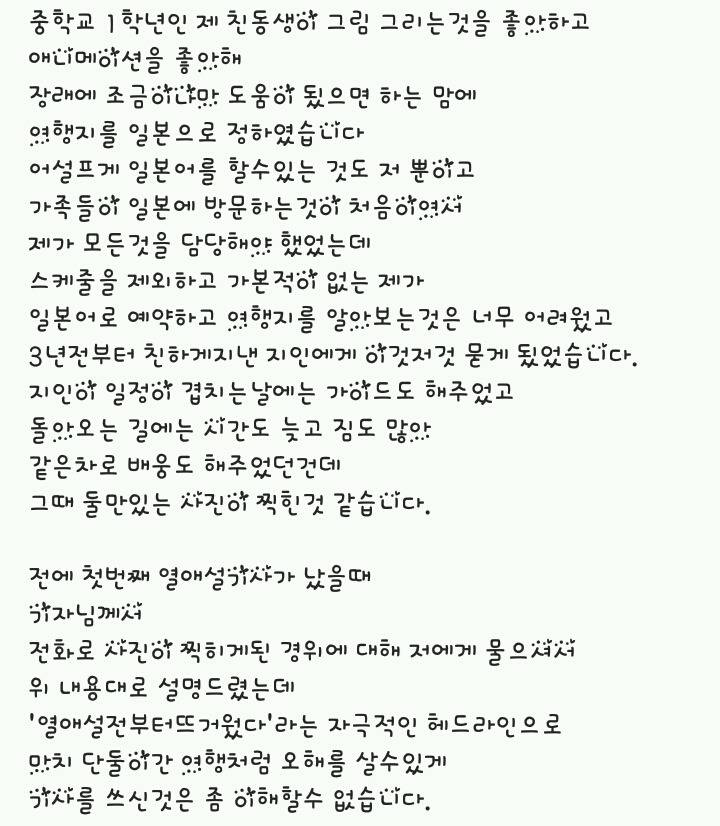 중학교 1학년인 제 친동생이 그림 그리는것을 좋아하고
애니메이션을 좋아해
장래에 조금이나마 도움이 됬으면 하는 맘에
여행지를 일본으로 정하였습니다
어설프게 일본어를 할수있는 것도 저 뿐이고
가족들이 일본에 방문하는것이 처음이여서
제가 모든것을 담당해야 했었는데
스케줄을 제외하고 가본적이 없는 제가
일본어로 예약하고 여행지를 알아보는것은 너무 어려웠고
3년전부터 친하게지낸 지인에게 이것저것 묻게 됬었습니다.
지인이 일정이 겹치는날에는 가이드도 해주었고
돌아오는 길에는 시간도 늦고 짐도 많아
같은차로 배웅도 해주었던건데
그때 둘만있는 사진이 찍힌것 같습니다.
전에 첫번째 열애설기사가 났을때
기자님께서
전화로 사진이 찍히게된 경위에 대해 저에게 물으셔서
위 내용대로 설명드렸는데
'열애설전부터뜨거웠다'라는 자극적인 헤드라인으로
마치 단둘이간 여행처럼 오해를 살수있게
기사를 쓰신것은 좀 이해할수 없습니다.